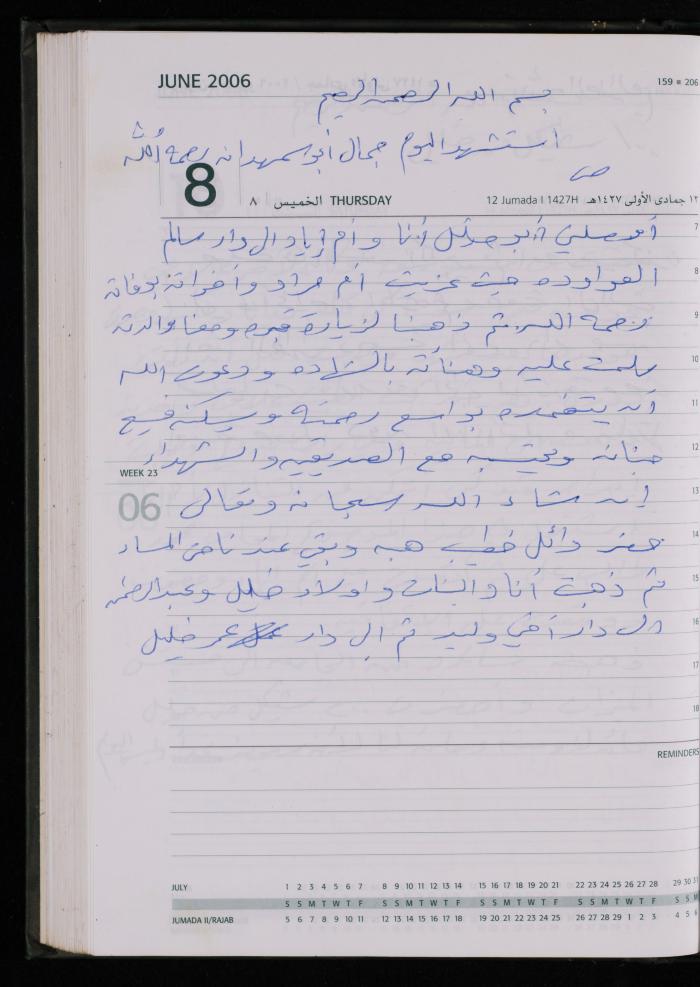 JUNE 2006
159 ■ 206
بسم الله الرحمن الرحيم
استشهد اليوم جمال أبو سمهدانه رحمه الله
8
٨ الخميس THURSDAY
12 Jumada I 1427H ١٢ جمادى الأولى ١٤٢٧هـ
7
أوصلني أبو صائل أنا وأم إياد الى دار سالم
8
العواوده حيث عزيت أم مراد وأخواته بوفاته
9
رحمه الله ثم ذهبنا لزيارة قبره ومعنا والدته
10
سلمت عليه وهنأته بالشهاده ودعوت الله
11
أن يتغمده بواسع رحمته ويسكنه فسيح
12
جنانه ويحتسبه مع الصديقين والشهداء
WEEK 23
06
13
إن شاء الله سبحانه وتعالى
14
حضر وائل خطيب هبه وبقي عندنا حتى المساء
15
ثم ذهبت أنا والبنات واولاد خليل وعبد الرحمن
16
الى دار أختي وليد ثم الى دار عمر خليل
17
18
REMINDERS
JULY 1 2 3 4 5 6 7 8 9 10 11 12 13 14 15 16 17 18 19 20 21 22 23 24 25 26 27 28 29 30 31
S S M T W T F S S M T W T F S S M T W T F S S M T W T F S S M
JUMADA II/RAJAB 5 6 7 8 9 10 11 12 13 14 15 16 17 18 19 20 21 22 23 24 25 26 27 28 29 1 2 3 4 5 6